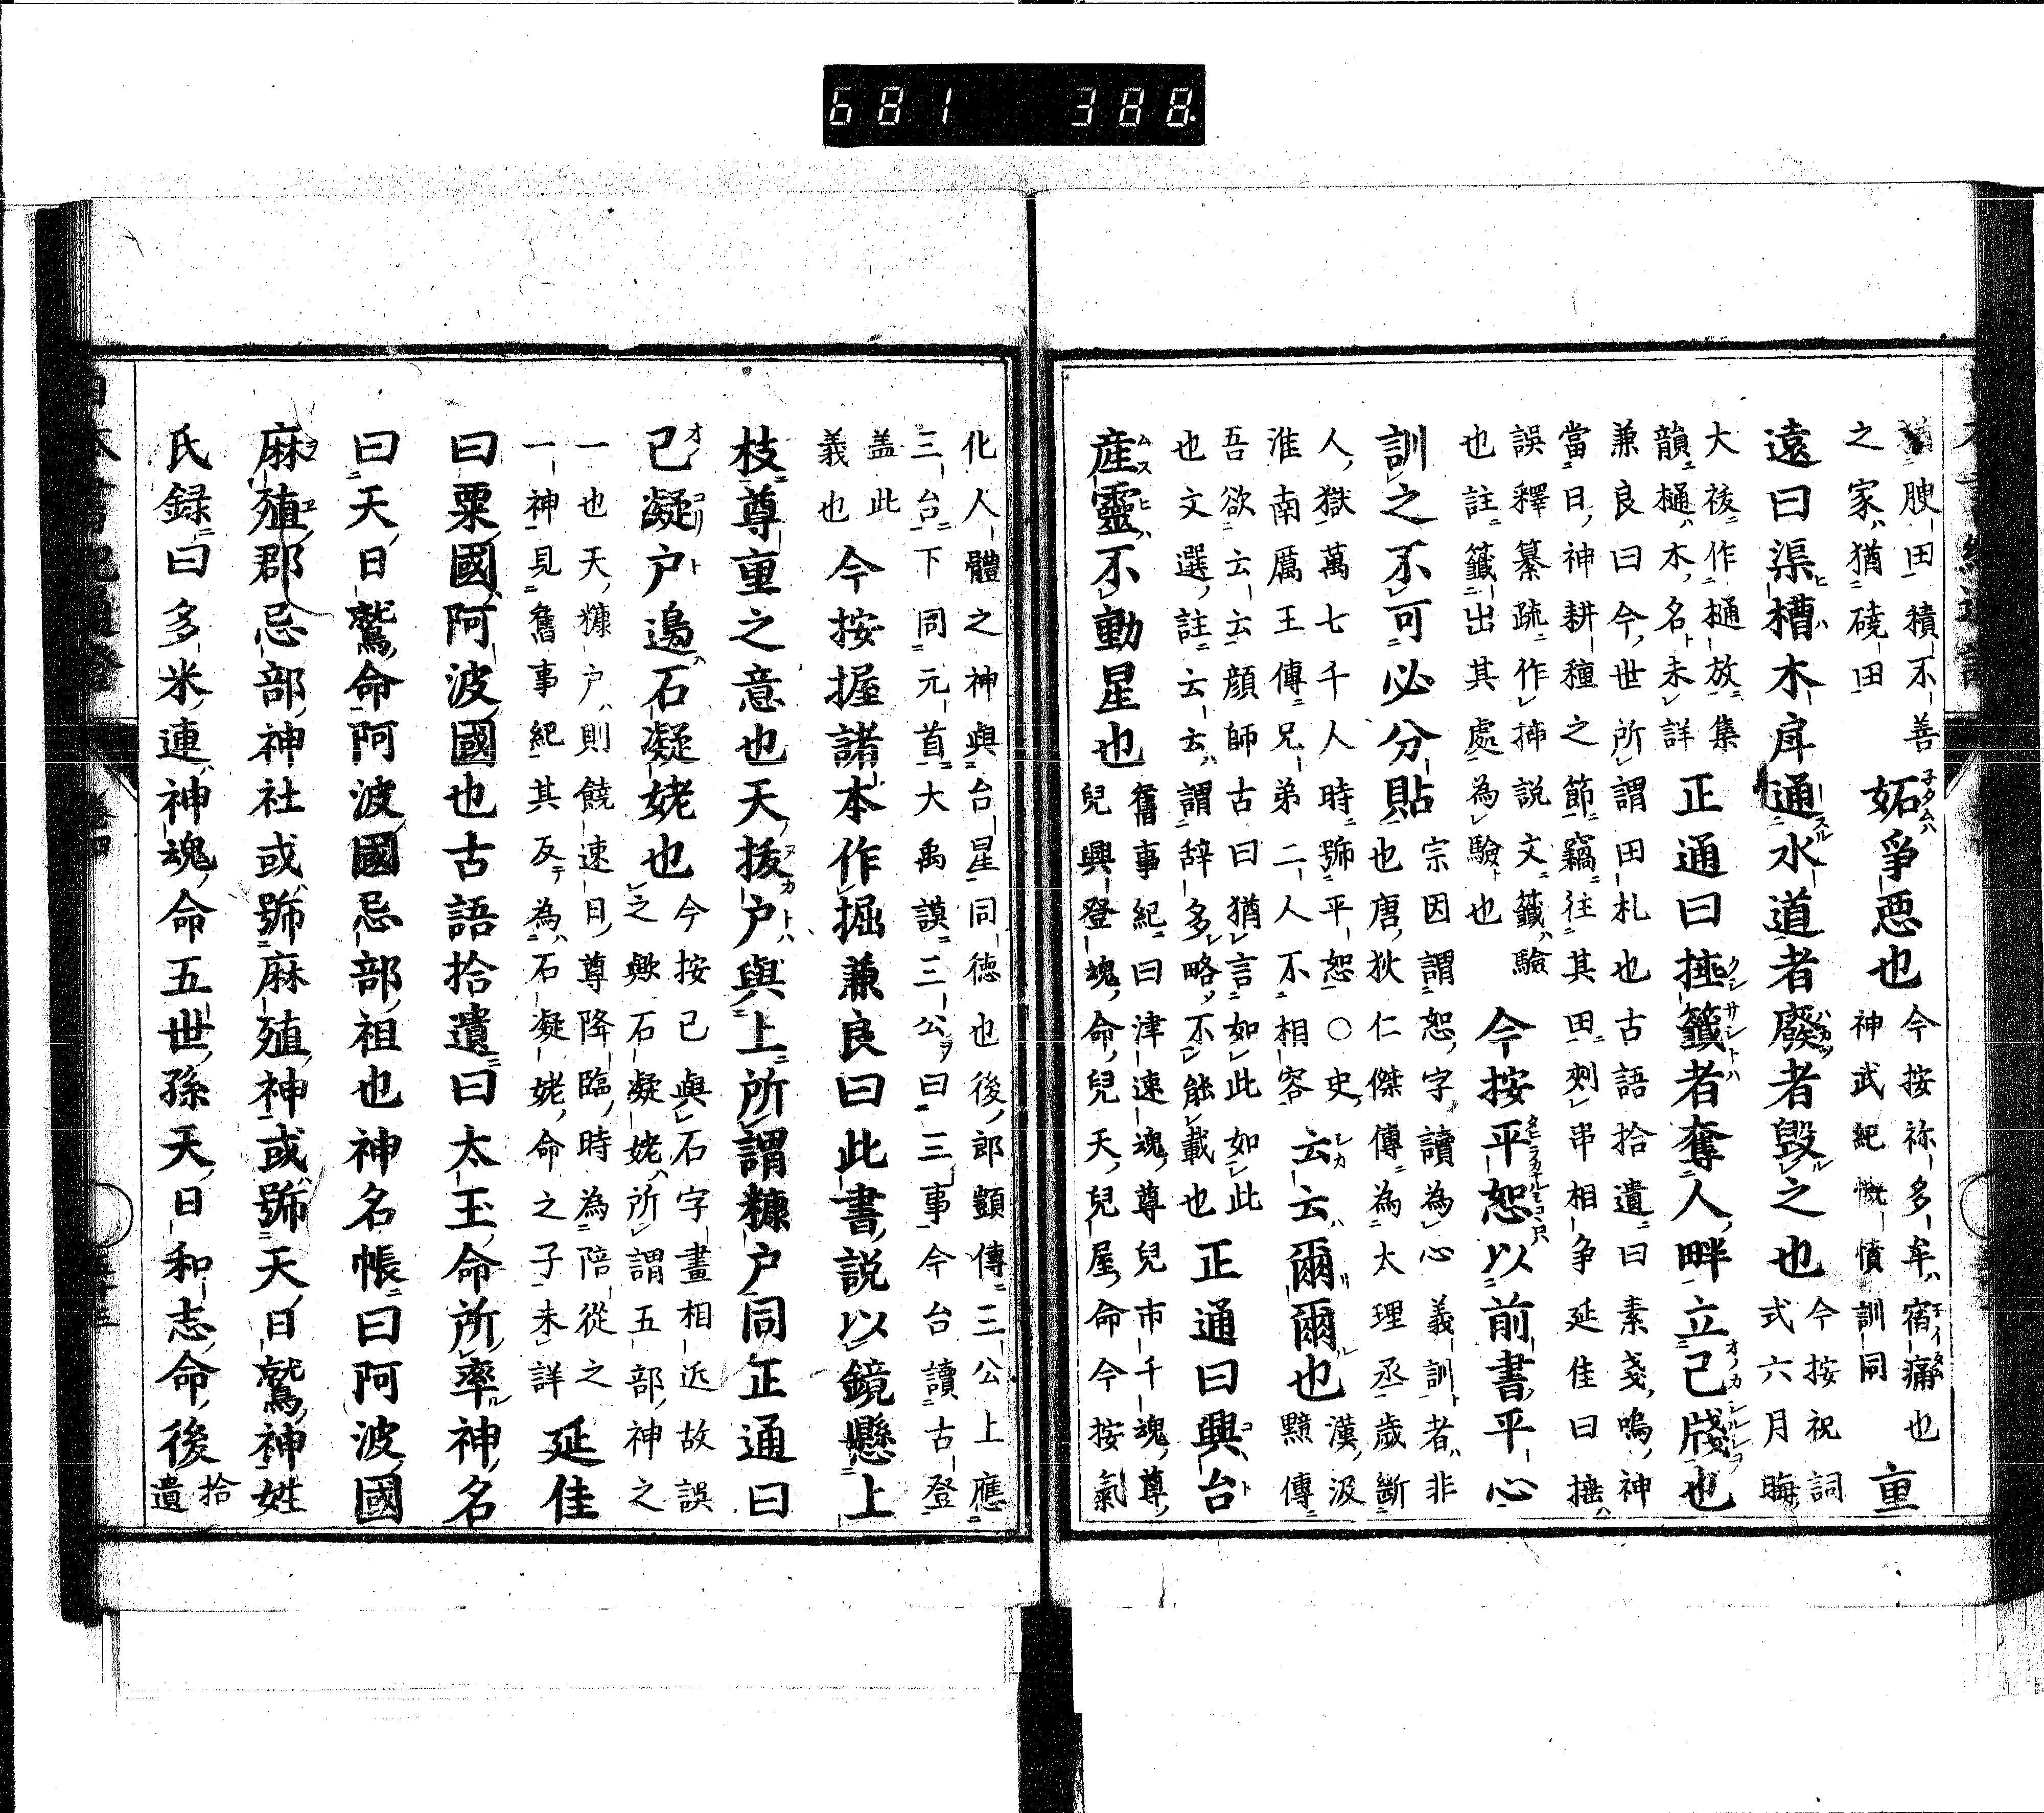 681 388
腴田積不善
之家猶磽田
妬爭惡也
今按祢多牟宿痛也
神武紀慨憤訓同
重
遠曰渠槽木㡿通水道者廢者毀之也
今按祝詞
式六月晦
大祓作樋放集
韻樋木名未詳
正通曰插籤者奪人畔立己牋也
兼良曰今世所謂田札也古語拾遺曰素戔嗚神
當日神耕種之節竊往其田刺串相爭延佳曰插
誤釋纂疏作揷說文籤驗
也註籤出其處為驗也
今按平恕以前書平心
訓之不可必分貼
宗因謂恕字讀為心義訓者非
也唐狄仁傑傳為大理丞歲斷
人獄萬七千人時號平恕○史漢汲
淮南厲王傳兄弟二人不相容黯傳
云云爾爾也
吾欲云云顔師古曰猶言如此如此
也文選註云云謂辞多略不能載也
正通曰興台
産靈不動星也
舊事紀曰津速魂尊兒市千魂尊
兒興登魂命兒天兒屋命今按氣
化人體之神與台星同德也後郎顗傳三公上應
三台下同元首大禹謨三公曰三事今台讀古登
盖此
義也
今按握諸本作掘兼良曰此書說以鏡懸上
枝尊重之意也天拔戶與上所謂糠戶同正通曰
已凝戶邊石凝姥也
今按已與石字畫相近故誤
之歟石凝姥所謂五部神之
一也天糠戶則饒速日尊降臨時為陪從之
一神見舊事紀其反為石凝姥命之子未詳
延佳
曰粟國阿波國也古語拾遺曰太玉命所率神名
曰天日鷲命阿波國忌部祖也神名帳曰阿波國
麻殖郡忌部神社或號麻殖神或號天日鷲神姓
氏録曰多米連神魂命五世孫天日和志命後
拾
遺